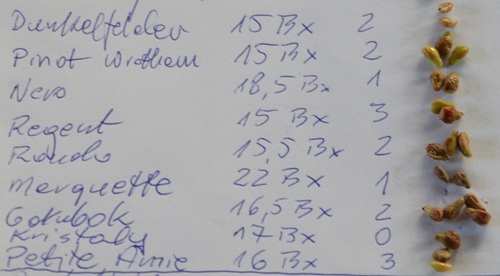 Dunkelfelder 15 Bx 2
Pinot Wrotham 15 Bx 2
Nero 18,5 Bx 1
Regent 15 Bx 3
Rondo 15,5 Bx 2
Marquette 22 Bx 1
16,5 Bx 2
Kristaly 17 Bx 0
Petite Amie 16 Bx 3